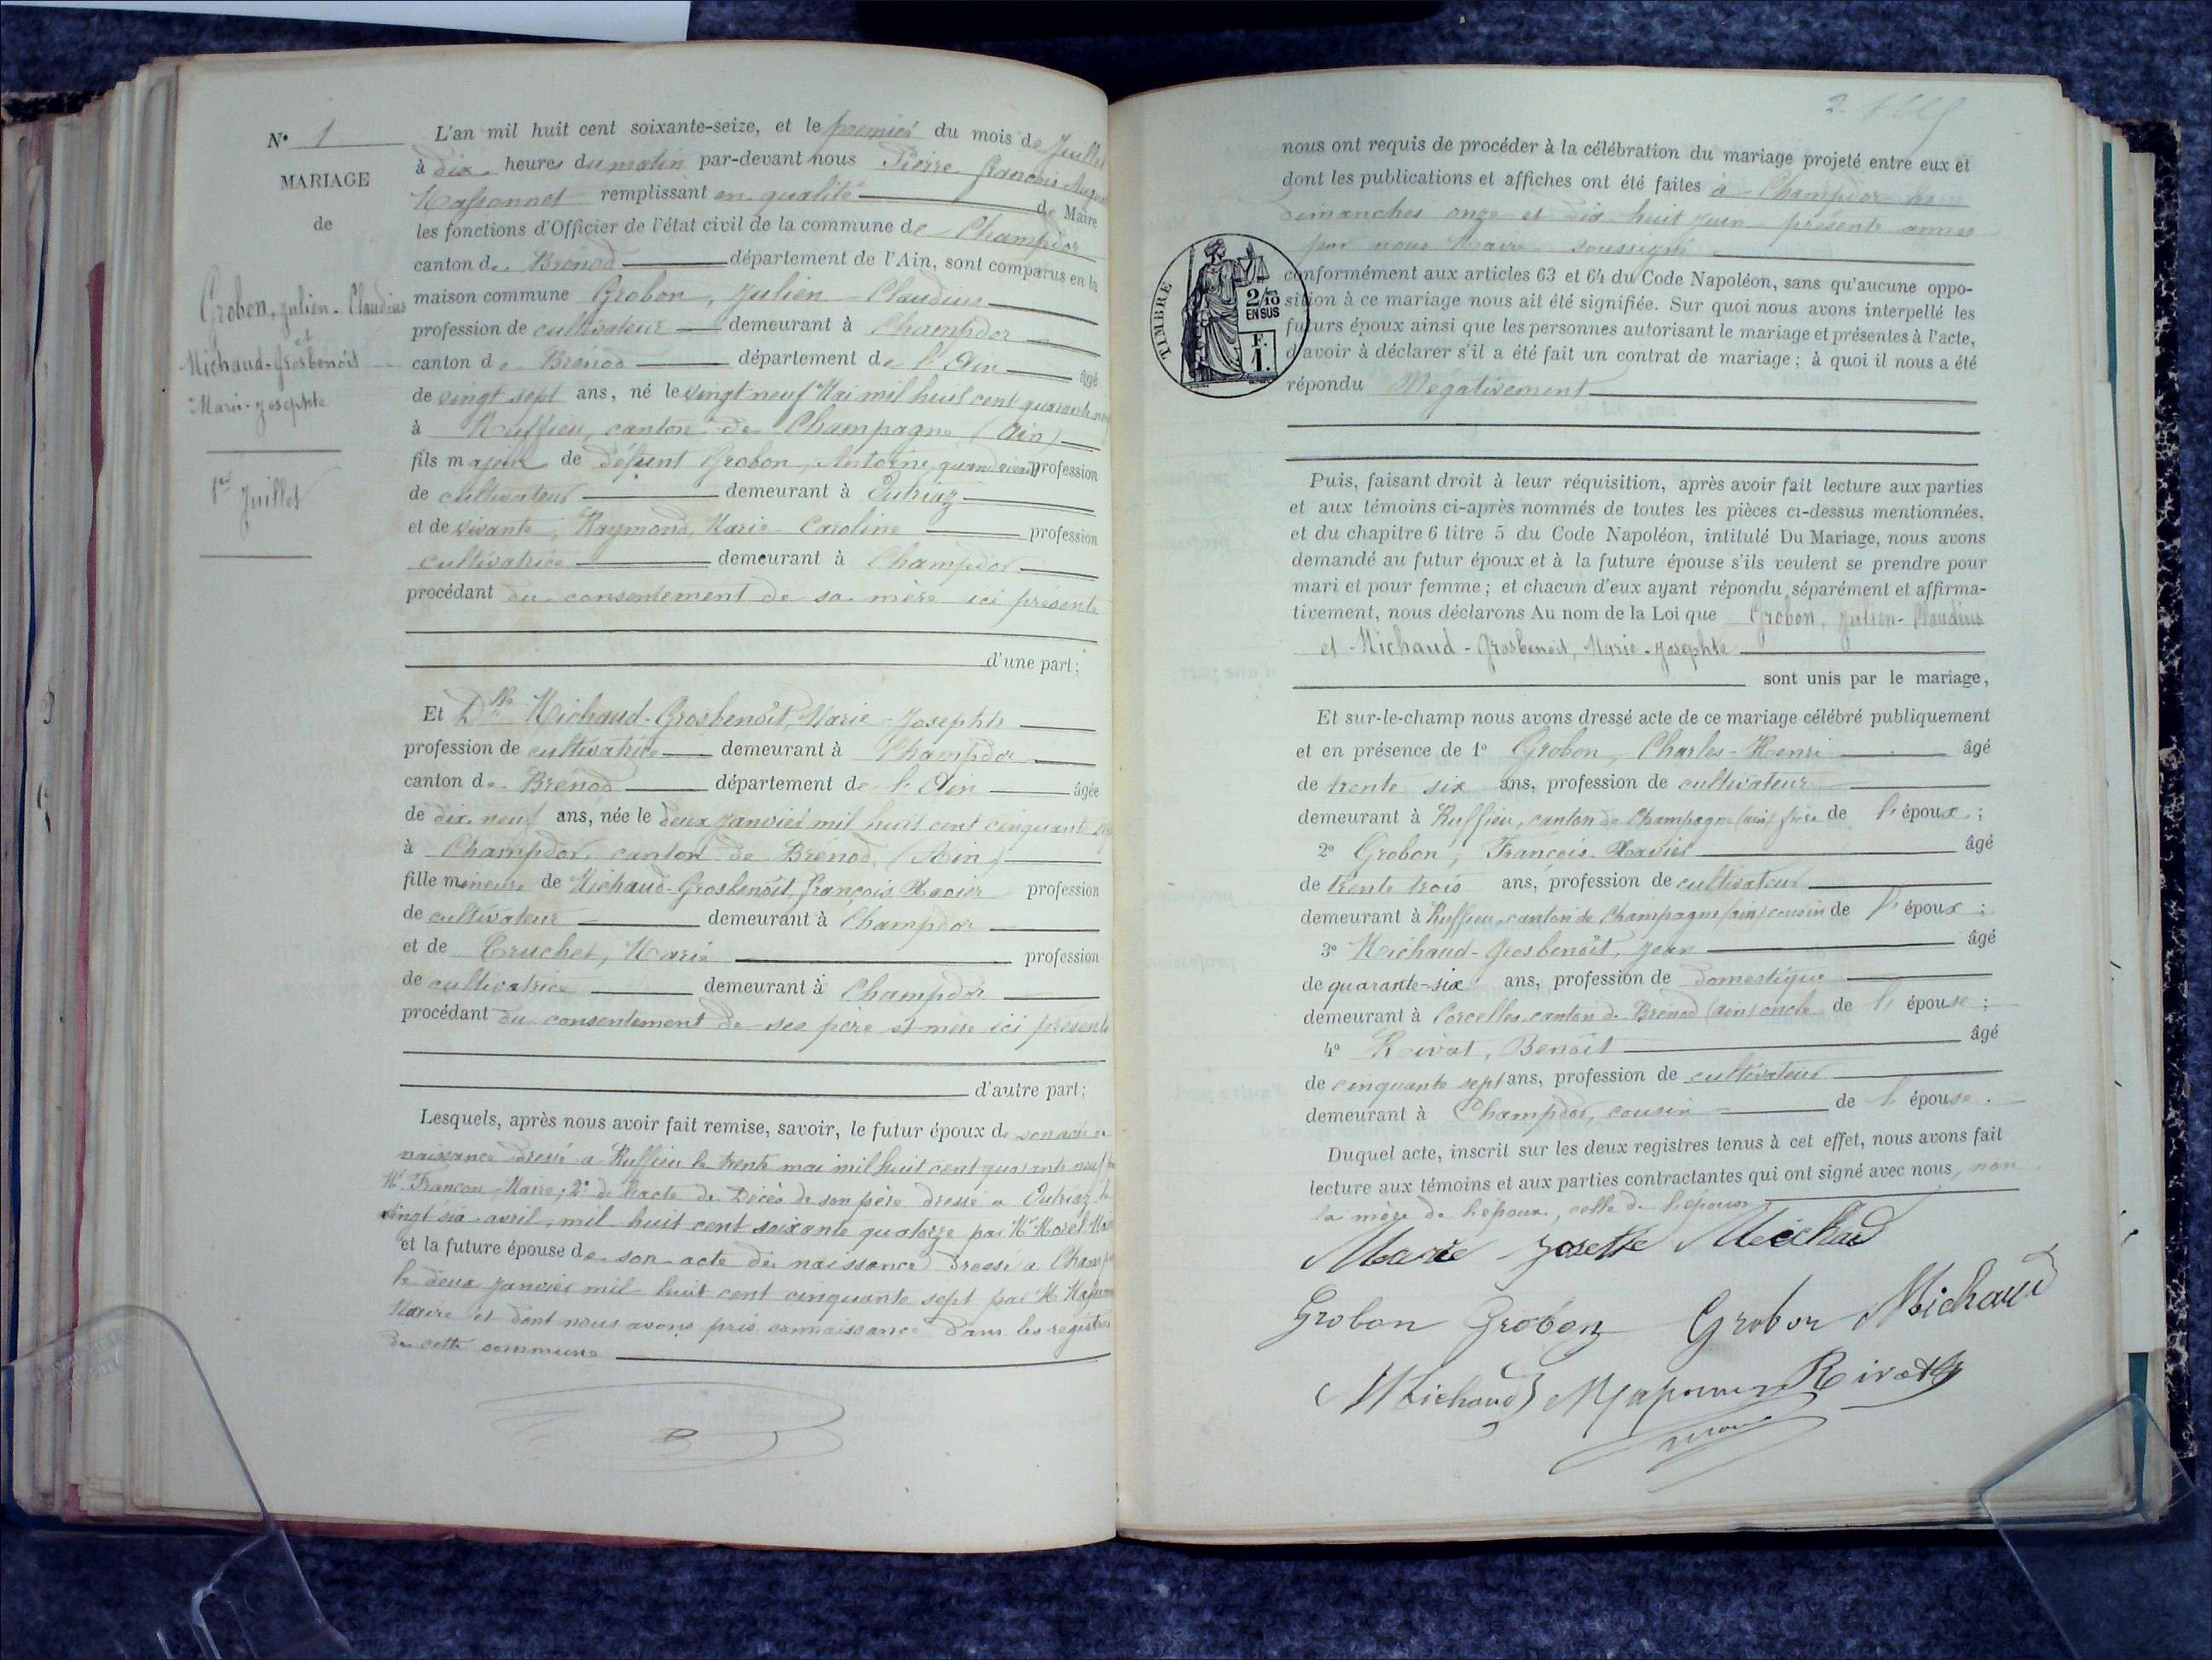 N° 1
MARIAGE
de
Grobon, Julien-Claudius
et
Michaud-Grosbenoît
Marie-Josephte
1er Juillet
L'an mil huit cent soixante-seize, et le premier du mois de Juillet
à dix heures du matin par-devant nous Pierre François
Massonnet remplissant en qualité de Maire
les fonctions d'Officier de l'état civil de la commune de Champdor
canton de Brénod département de l'Ain, sont comparus en la
maison commune Grobon, Julien-Claudius
profession de cultivateur demeurant à Champdor
canton de Brénod département de l'Ain âgé
de vingt sept ans, né le vingt neuf Mai mil huit cent quarante
à Ruffieu, canton de Champagne (Ain)
fils majeur de défunt Grobon, Antoine, quand vivait profession
de cultivateur demeurant à Outriaz
et de vivante, Raymond, Marie Caroline profession
cultivatrice demeurant à Champdor
procédant du consentement de sa mère ici présente
d'une part;
Et Dlle Michaud-Grosbenoît, Marie-Josephte
profession de cultivatrice demeurant à Champdor
canton de Brénod département de l'Ain âgée
de dix neuf ans, née le deux Janvier mil huit cent cinquante
à Champdor, canton de Brénod, (Ain)
fille mineure de Michaud-Grosbenoît, François Xavier profession
de cultivateur demeurant à Champdor
et de Truchet, Marie profession
de cultivatrice demeurant à Champdor
procédant du consentement de ses père et mère ici présents
d'autre part;
Lesquels, après nous avoir fait remise, savoir, le futur époux de son acte de
naissance dressé à Ruffieu le trente mai mil huit cent quarante neuf
Mr Francon, Maire; 2° de l'acte de décès de son père dressé à Outriaz le
vingt six avril, mil huit cent soixante quatorze par Mr Morel
et la future épouse de son acte de naissance dressé à
le deux Janvier mil huit cent cinquante sept par M
Maire et dont nous avons pris connaissance dans les registres
de cette commune
2.
nous ont requis de procéder à la célébration du mariage projeté entre eux et
dont les publications et affiches ont été faites à Champdor les
dimanches onze et dix huit Juin présente année
par nous Maire soussigné
TIMBRE
2/10
EN SUS
F.
1.
conformément aux articles 63 et 64 du Code Napoléon, sans qu'aucune oppo-
sition à ce mariage nous ait été signifiée. Sur quoi nous avons interpellé les
futurs époux ainsi que les personnes autorisant le mariage et présentes à l'acte,
d'avoir à déclarer s'il a été fait un contrat de mariage; à quoi il nous a été
répondu Négativement
Puis, faisant droit à leur réquisition, après avoir fait lecture aux parties
et aux témoins ci-après nommés de toutes les pièces ci-dessus mentionnées,
et du chapitre 6 titre 5 du Code Napoléon, intitulé Du Mariage, nous avons
demandé au futur époux et à la future épouse s'ils veulent se prendre pour
mari et pour femme; et chacun d'eux ayant répondu séparément et affirma-
tivement, nous déclarons Au nom de la Loi que Grobon, Julien-Claudius
et Michaud-Grosbenoît, Marie-Josephte
sont unis par le mariage,
Et sur-le-champ nous avons dressé acte de ce mariage célébré publiquement
et en présence de 1° Grobon, Charles-Henri âgé
de trente six ans, profession de cultivateur
demeurant à Ruffieu, canton de Champagne (ain) frère de l'époux;
2° Grobon, François-Xavier âgé
de trente trois ans, profession de cultivateur
demeurant à Ruffieu, canton de Champagne (ain) cousin de l'époux;
3° Michaud-Grosbenoît, Jean âgé
de quarante-six ans, profession de domestique
demeurant à Corcelles, canton de Brénod (ain) oncle de l'épouse;
4° Rivat, Benoît âgé
de cinquante sept ans, profession de cultivateur
demeurant à Champdor, cousin de l'épouse.
Duquel acte, inscrit sur les deux registres tenus à cet effet, nous avons fait
lecture aux témoins et aux parties contractantes qui ont signé avec nous, non
la mère de l'époux, celle de l'épouse
Marie Josette Michaud
Grobon Grobon Grobon Michaud
Michaud Rivat